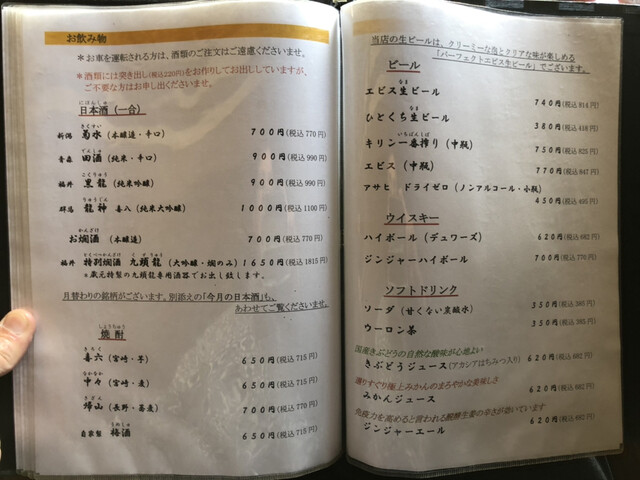 お飲み物
＊お車を運転される方は、酒類のご注文はご遠慮くださいませ。
＊酒類には突き出し(税込220円)をお作りしてお出ししていますが、
ご不要な方はお申し出くださいませ。
にほんしゅ
日本酒(一合)
きくすい
新潟 菊水(本醸造・辛口) 700円(税込770円)
でんしゅ
青森 田酒(純米・辛口) 900円(税込990円)
こくりゅう
福井 黒龍(純米吟醸) 900円(税込990円)
りゅうじん
群馬 龍神 喜八(純米大吟醸) 1000円(税込1100円)
かんざけ
お燗酒(本醸造) 700円(税込770円)
とくべつかんざけ くずりゅう
福井 特別燗酒 九頭龍(大吟醸・燗のみ) 1650円(税込1815円)
＊蔵元特製の九頭龍専用酒器でお出し致します。
月替わりの銘柄がございます。別添えの「今月の日本酒」も、
あわせてご覧くださいませ。
しょうちゅう
焼酎
きろく
喜六(宮崎・芋) 650円(税込715円)
なかなか
中々(宮崎・麦) 650円(税込715円)
きざん
帰山(長野・蕎麦) 700円(税込770円)
うめしゅ
自家製 梅酒 650円(税込715円)
当店の生ビールは、クリーミーな泡とクリアな味が楽しめる
「パーフェクトエビス生ビール」でございます。
ビール
なま
エビス生ビール 740円(税込814円)
なま
ひとくち生ビール 380円(税込418円)
いちばんしぼ
キリン一番搾り(中瓶) 750円(税込825円)
エビス(中瓶) 770円(税込847円)
アサヒ ドライゼロ(ノンアルコール・小瓶)
450円(税込495円)
ウイスキー
ハイボール(デュワーズ) 620円(税込682円)
ジンジャーハイボール 700円(税込770円)
ソフトドリンク
ソーダ(甘くない炭酸水) 350円(税込385円)
ウーロン茶 350円(税込385円)
国産きぶどうの自然な酸味が心地よい
きぶどうジュース(アカシアはちみつ入り) 620円(税込682円)
選りすぐり極上みかんのまろやかな美味しさ
みかんジュース 620円(税込682円)
免疫力を高めると言われる醗酵生姜の辛さが効いています
ジンジャーエール 620円(税込682円)